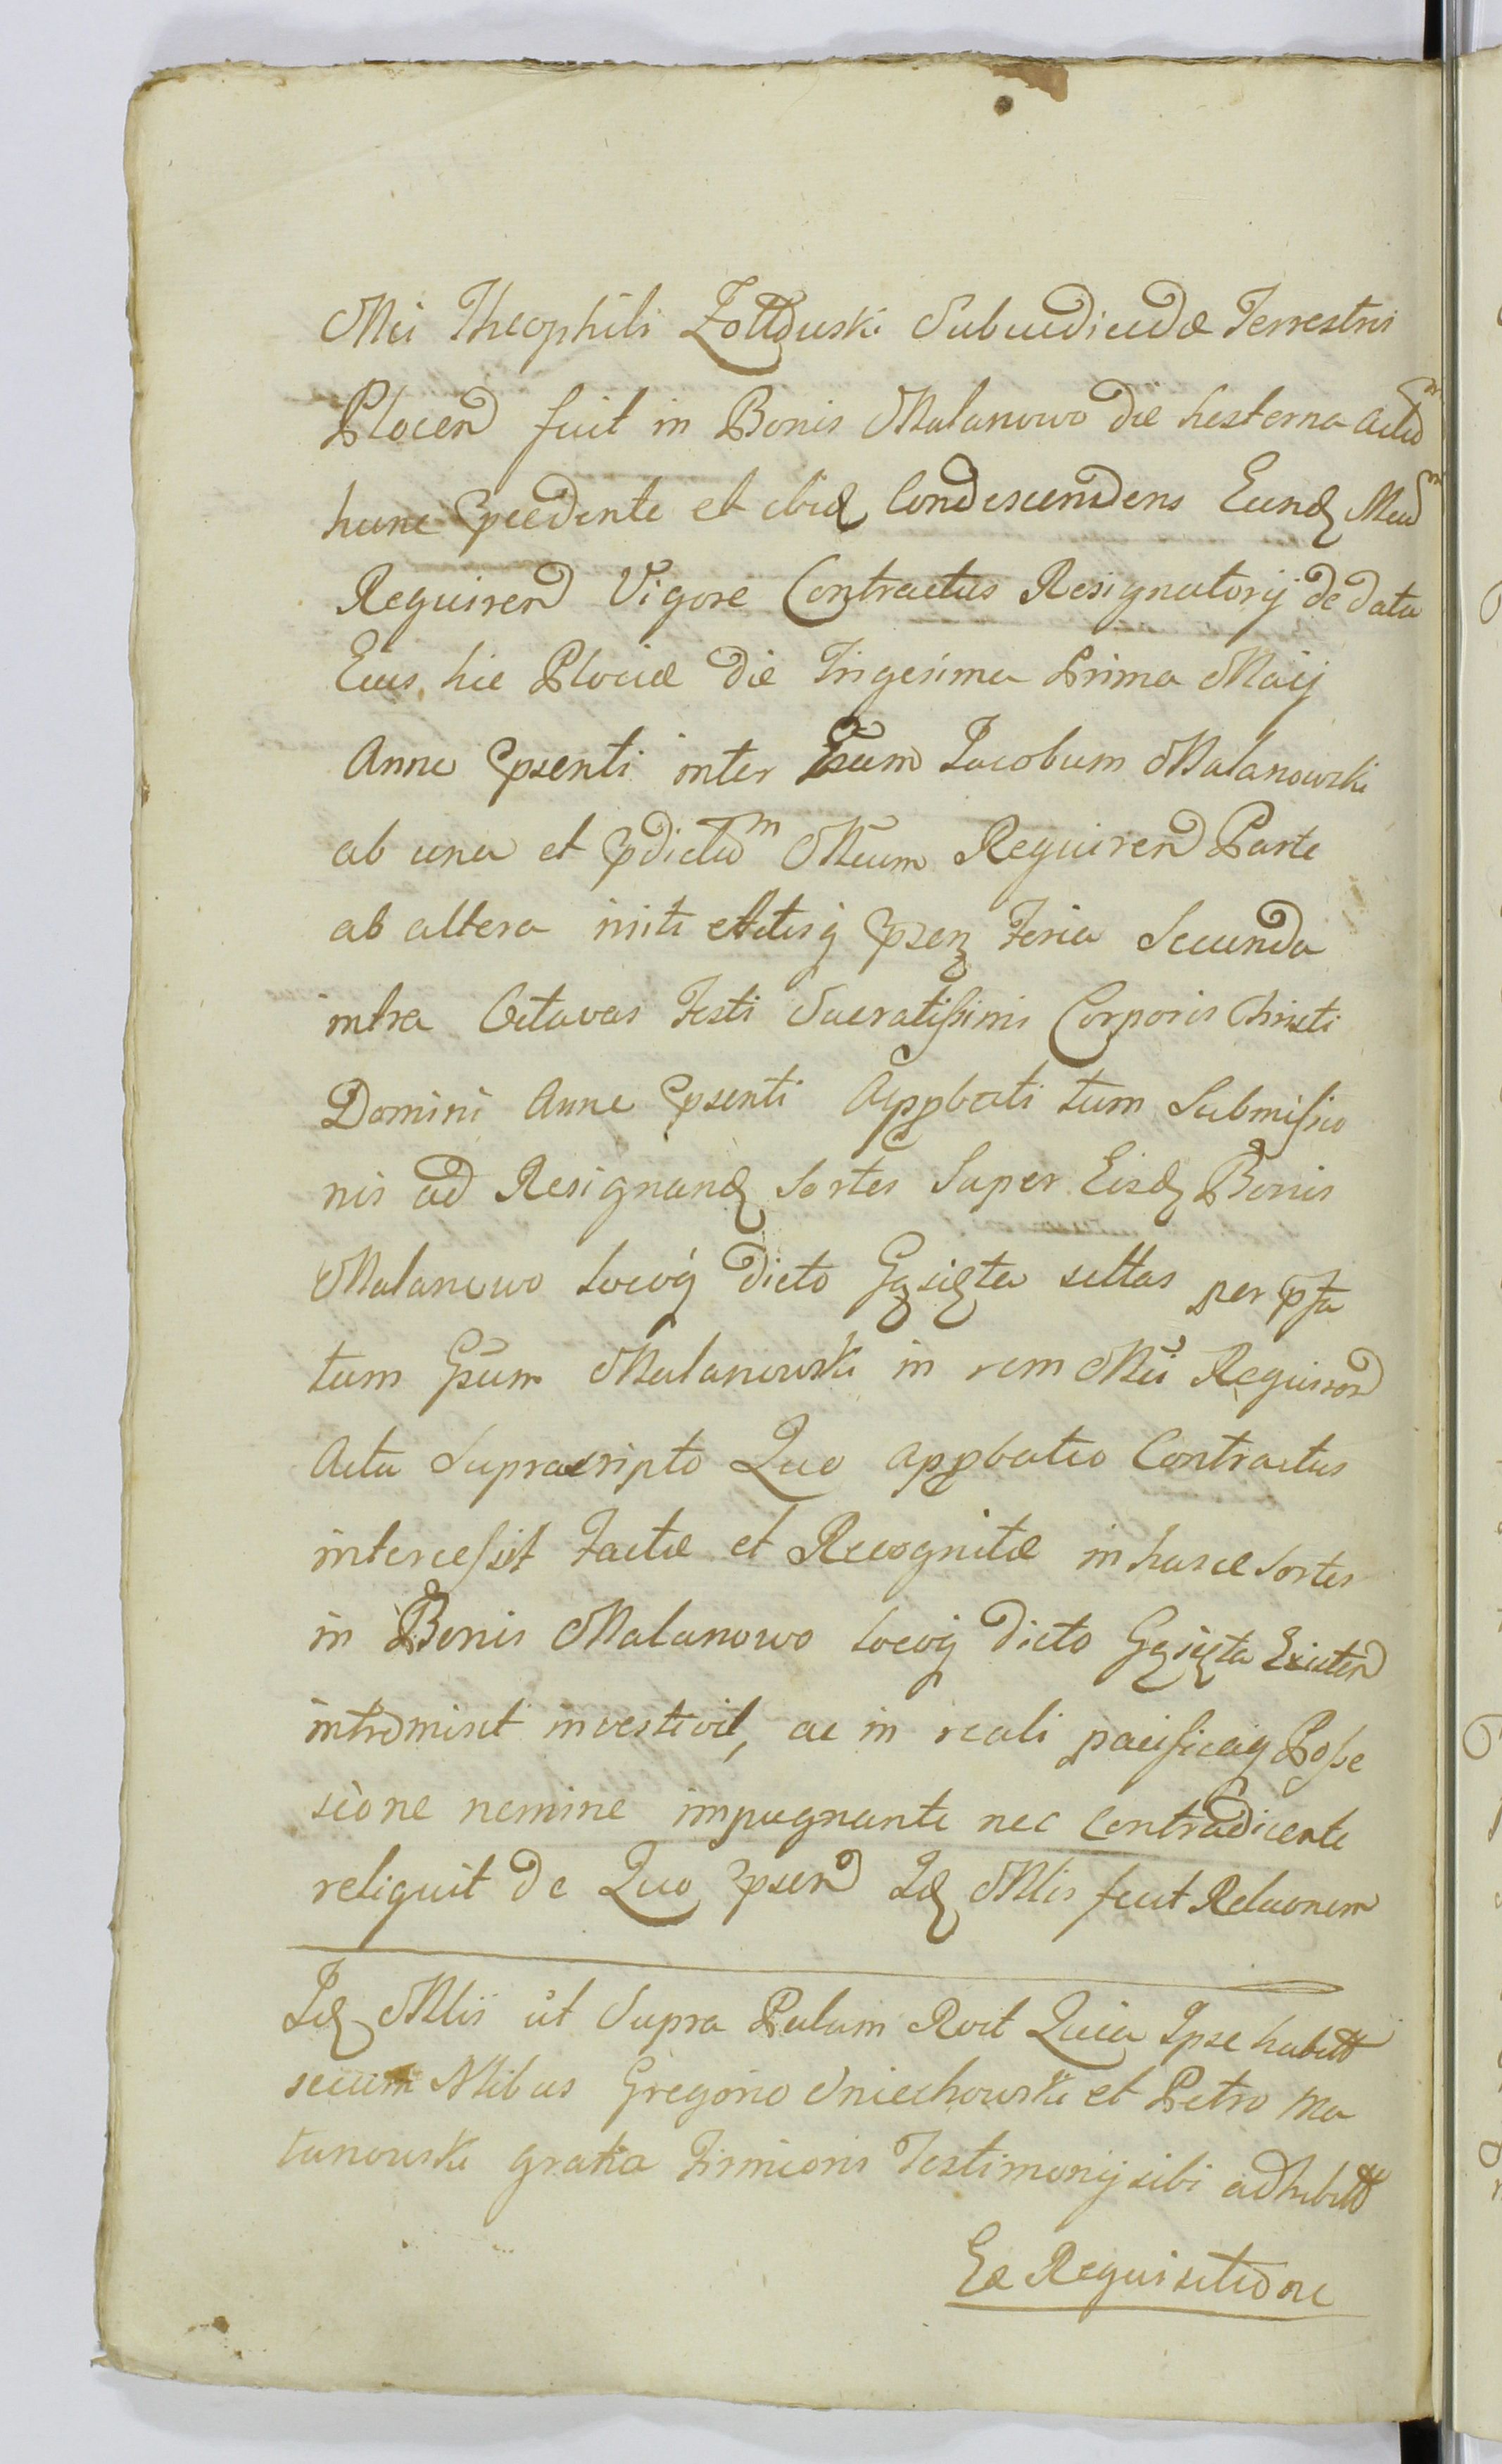 Mci Theophili Zołtowski Subiudicis Terrestris
Plocen fuit in Bonis Malanowo die hesterna actum
hunc pcedente et ibid Condescendens Eund Mcum
Requiren Vigore Contractus Resignatorij de data
Eius hic Plociae die Trigesima Prima Maij
Anno psenti inter Gsum Jacobum Malanowski
ab una et pdictum Mcum Requiren Parte
ab altera initi Actisq psen Feria Secunda
intra Octavas Festi Sacratissimi Corporis Christi
Domini Anno psenti Appbati tum Submissio
nis ad Resignand Sortes Super Eisd Bonis
Malanowo Locoq dicto Gąsięta sittas per pfa
tum Gsum Malanowski in rem Mci Requiren
Actu Suprascripto Quo appbatio Contractus
intercessit Factae et Recognitae in hasce Sortes
in Bonis Malanowo Locoq dicto Gąsięta Existen
intromisit investivit, ac in reali pacificaq Posse
sione nemine impugnante nec Contradicente
reliquit de Quo psen Id Mlis fecit Relaonem
Id Mlis ut Supra Palam Rcit Quia Ipse habuit
secum Nlibus Gregorio Sniechowski et Petro Ma
lanowski gratia Firmioris Testimonij sibi adhibitt
Ex Requisitione